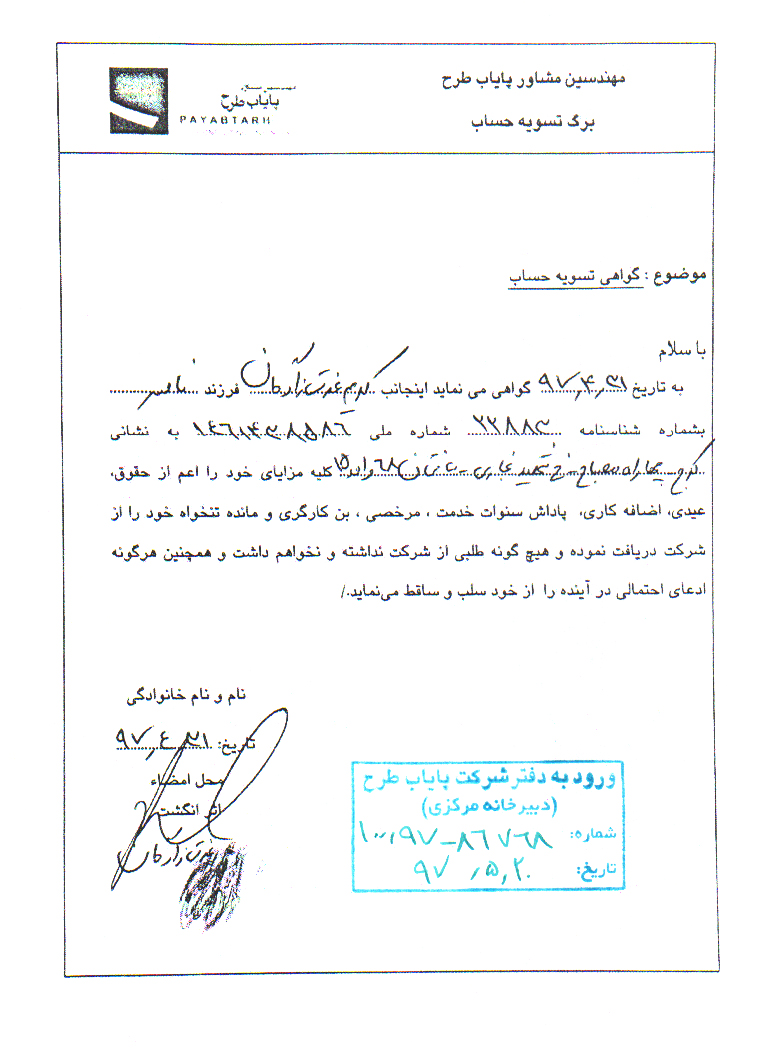 مهندسین مشاور پایاب طرح
برگ تسویه حساب
پایاب طرح
PAYABTARH
موضوع : گواهی تسویه حساب
با سلام
به تاریخ ۹۷٫۴٫۳۱ گواهی می نماید اینجانب کریم فرزند
بشماره شناسنامه شماره ملی به نشانی
کرج چهارراه مصباح کلیه مزایای خود را اعم از حقوق،
عیدی، اضافه کاری، پاداش سنوات خدمت ، مرخصی ، بن کارگری و مانده تنخواه خود را از
شرکت دریافت نموده و هیچ گونه طلبی از شرکت نداشته و نخواهم داشت و همچنین هرگونه
ادعای احتمالی در آینده را از خود سلب و ساقط می‌نماید./
نام و نام خانوادگی
تاریخ: ۹۷٫۴٫۳۱
محل امضاء
اثر انگشت
ورود به دفتر شرکت پایاب طرح
(دبیرخانه مرکزی)
شماره: ۱۰۰٫۹۷-۸۶۷۶۸
تاریخ: ۹۷٫۵٫۲۰